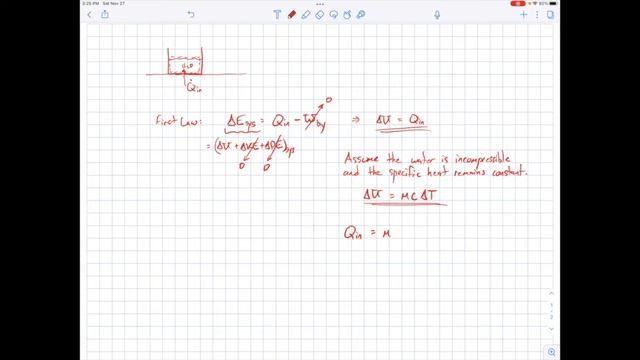 3:25 PM Sat Nov 27
82%
H₂O
Q̇in
First Law: ΔEsys = Qin − Wby 0 ⇒ ΔU = Qin
= (ΔU + ΔKE + ΔPE)sys
0 0
Assume the water is incompressible
and the specific heat remains constant.
ΔU = mcΔT
Qin = m